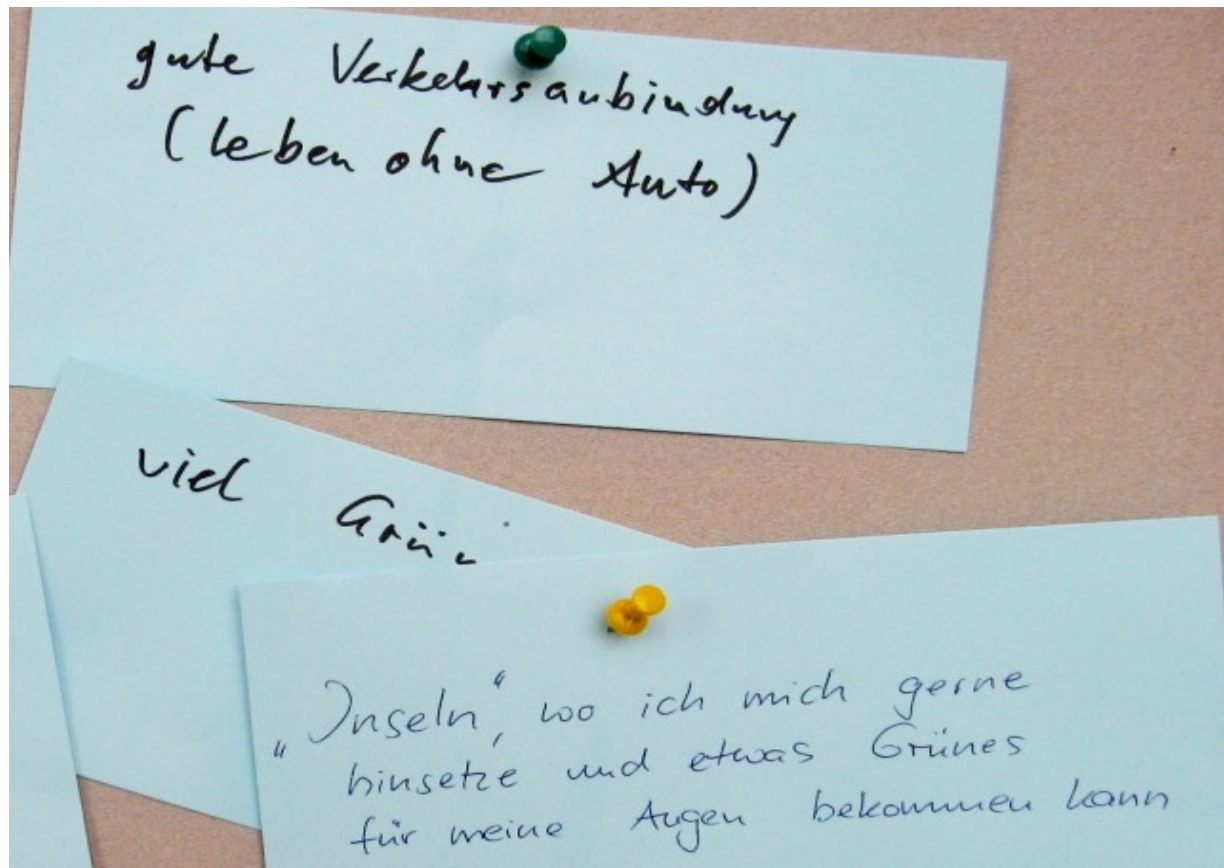 gute Verkehrsanbindung
(leben ohne Auto)
viel Grün
„Inseln“, wo ich mich gerne
hinsetze und etwas Grünes
für meine Augen bekommen kann